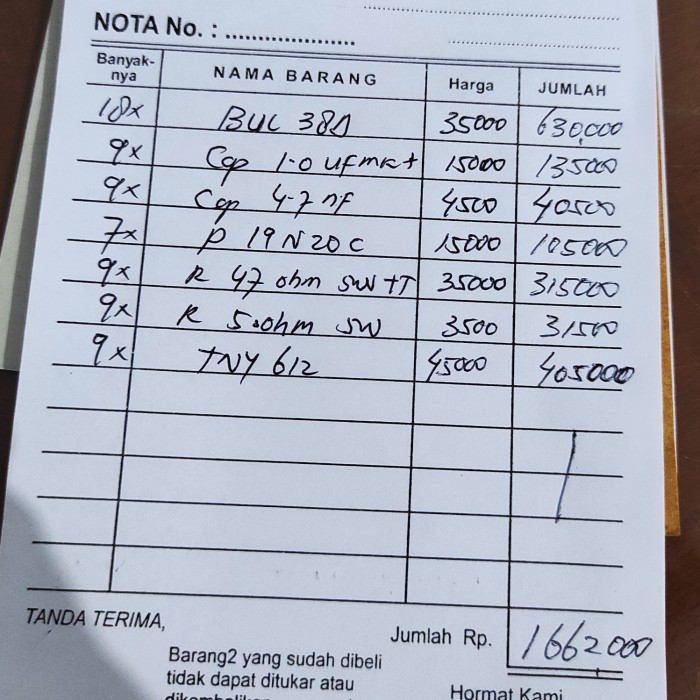 NOTA No. : ....................
Banyak-nya NAMA BARANG Harga JUMLAH
18x BUL 38D 35000 630,000
9x Cap 1.0 ufmkt 15000 135000
9x Cap 4.7 nf 4500 40500
7x P 19N20C 15000 105000
9x R 47 ohm 5W tT 35000 315000
9x R 5.ohm 5W 3500 31500
9x TNY 612 45000 405000
TANDA TERIMA,
Jumlah Rp. 1662000
Barang2 yang sudah dibeli
tidak dapat ditukar atau
Hormat Kami